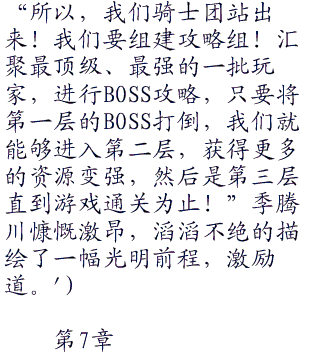 “所以，我们骑士团站出
来！我们要组建攻略组！汇
聚最顶级、最强的一批玩
家，进行BOSS攻略，只要将
第一层的BOSS打倒，我们就
能够进入第二层，获得更多
的资源变强，然后是第三层
直到游戏通关为止！”季腾
川慷慨激昂，滔滔不绝的描
绘了一幅光明前程，激励
道。')
第7章